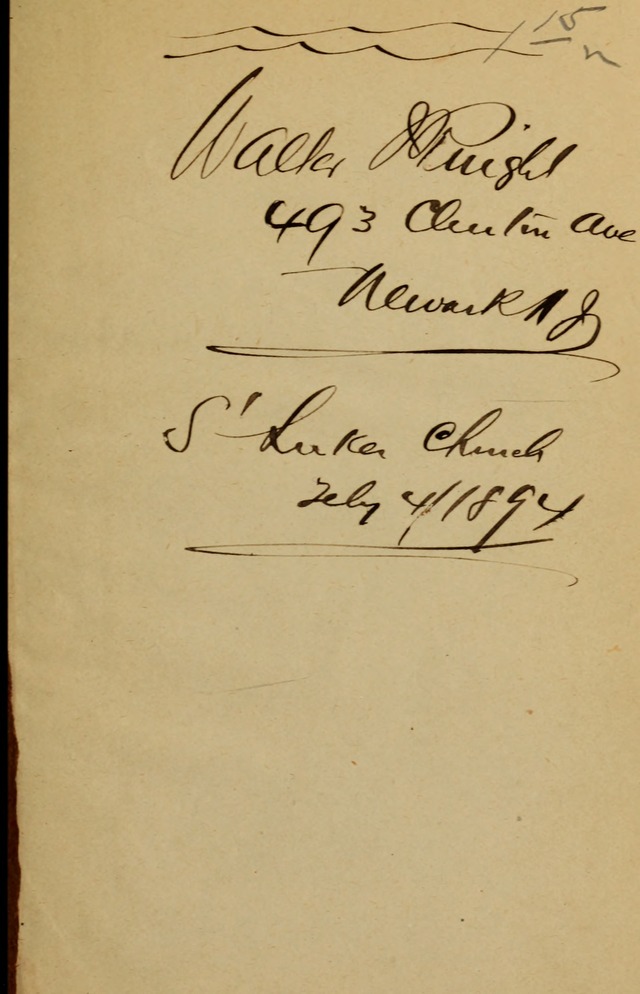 1 15
n
Walter Wright
493 Clinton Ave
Newark N J
St Lukes Church
Feby 4/1894